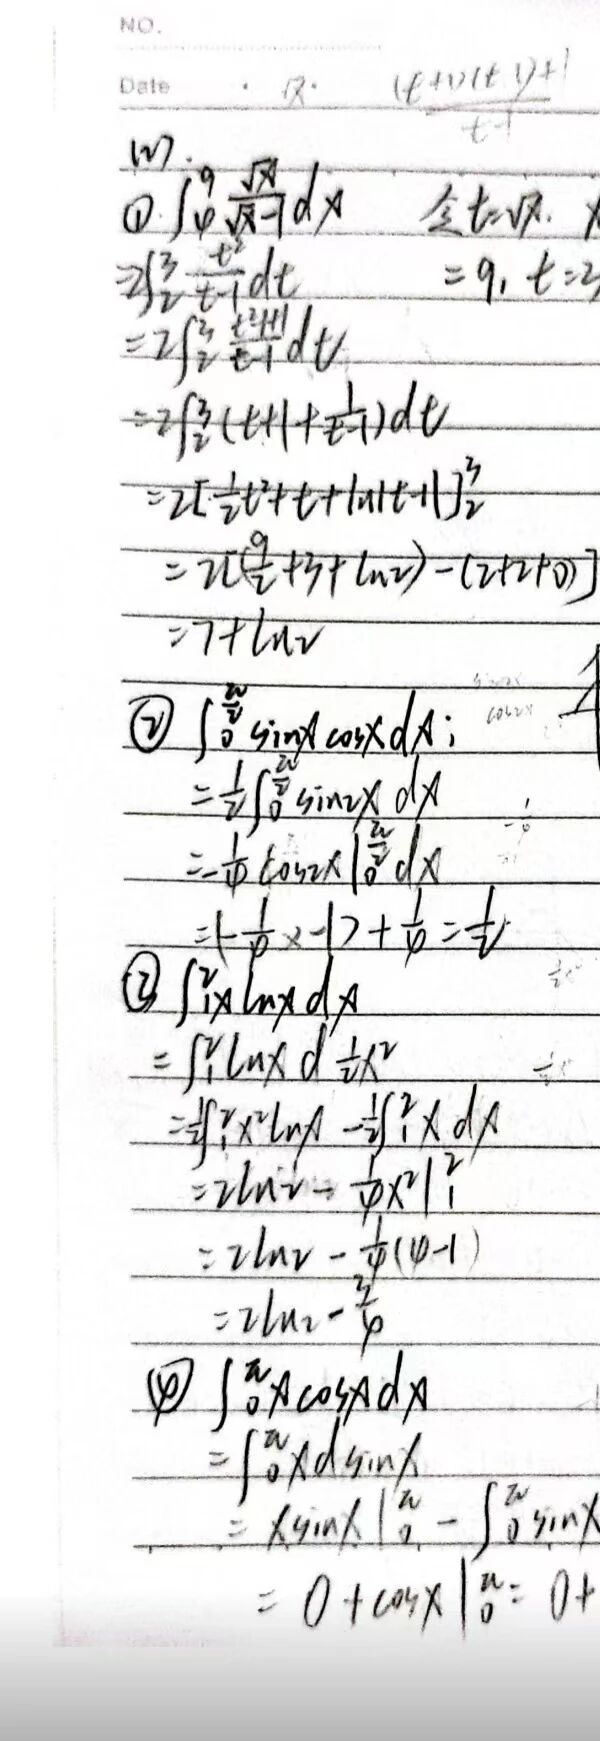 NO.
Date
(t+1)(t-1)+1
t-1
(2).
①. ∫₄⁹ √x/(√x-1) dx 令t=√x. x
=2∫₂³ t²/(t-1) dt =9, t=3
=2∫₂³ (t²-1+1)/(t-1) dt
=2∫₂³ (t+1+1/(t-1)) dt
=2[½t²+t+ln|t-1|]₂³
=2[(9/2+3+ln2)-(2+2+0)]
=7+ln2
② ∫₀^(π/2) sinx cosx dx;
=½∫₀^(π/2) sin2x dx
=-¼ cos2x |₀^(π/2) dx
=(-¼×-1)+¼=½
③ ∫₁² x lnx dx
=∫₁² lnx d ½x²
=½∫₁² x² lnx -½∫₁² x dx
=2ln2 - ¼x²|₁²
=2ln2 - ¼(4-1)
=2ln2 - ¾
④ ∫₀^π x cosx dx
=∫₀^π x d sinx
= x sinx |₀^π - ∫₀^π sinx
= 0 + cosx |₀^π = 0+